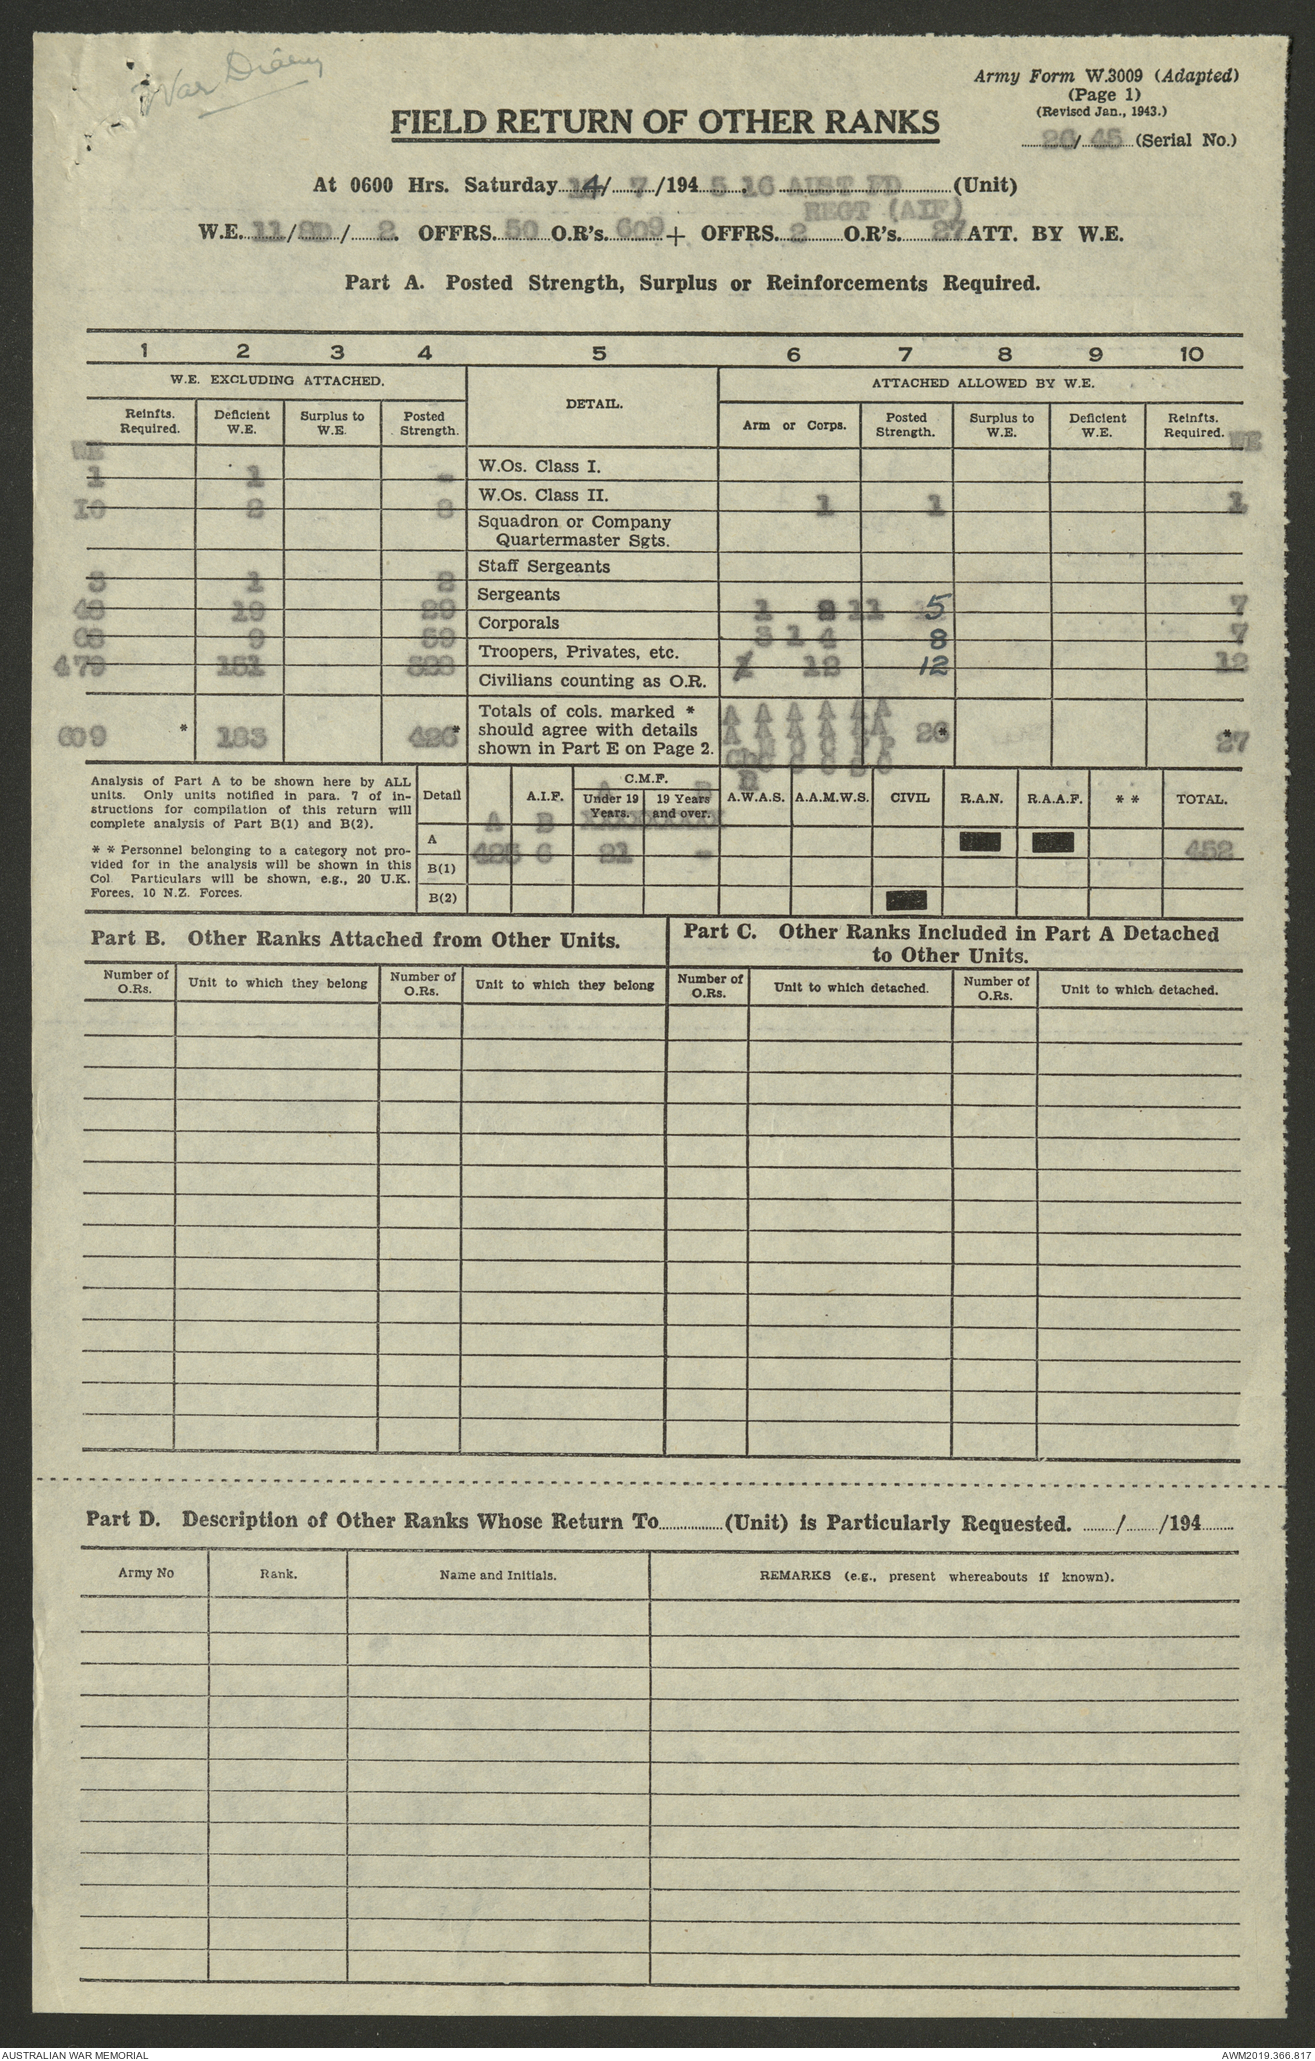 War Diary
Army Form W.3009 (Adapted)
(Page 1)
(Revised Jan., 1943.)
26/45 (Serial No.)
FIELD RETURN OF OTHER RANKS
At 0600 Hrs. Saturday 14/7/1945. 16 AUST FD (Unit)
REGT (AIF)
W.E. 11/ / 2. OFFRS. 50 O.R's. 609 + OFFRS. 2 O.R's. 27 ATT. BY W.E.
Part A. Posted Strength, Surplus or Reinforcements Required.
1 2 3 4 5 6 7 8 9 10
W.E. EXCLUDING ATTACHED. DETAIL. ATTACHED ALLOWED BY W.E.
Reinfts. Required. Deficient W.E. Surplus to W.E. Posted Strength. Arm or Corps. Posted Strength. Surplus to W.E. Deficient W.E. Reinfts. Required.
WE WE
1 1 - W.Os. Class I.
10 2 8 W.Os. Class II. 1 1 1
Squadron or Company
Quartermaster Sgts.
3 1 2 Staff Sergeants
48 19 29 Sergeants 1 2 11 5 7
68 9 59 Corporals 3 1 4 8 7
479 151 328 Troopers, Privates, etc. 1 12 12 12
Civilians counting as O.R.
Totals of cols. marked * A A A A A A
should agree with details A A A A A A
609 * 183 426* shown in Part E on Page 2. 26* *27
Analysis of Part A to be shown here by ALL
units. Only units notified in para. 7 of in-
structions for compilation of this return will
complete analysis of Part B(1) and B(2).
* * Personnel belonging to a category not pro-
vided for in the analysis will be shown in this
Col. Particulars will be shown, e.g., 20 U.K.
Forces, 10 N.Z. Forces.
Detail A.I.F. C.M.F. Under 19 Years. 19 Years and over. A.W.A.S. A.A.M.W.S. CIVIL R.A.N. R.A.A.F. * * TOTAL.
A B A B
A 425 6 21 - 452
B(1)
B(2)
Part B. Other Ranks Attached from Other Units.
Part C. Other Ranks Included in Part A Detached
to Other Units.
Number of O.Rs. Unit to which they belong Number of O.Rs. Unit to which they belong Number of O.Rs. Unit to which detached. Number of O.Rs. Unit to which detached.
Part D. Description of Other Ranks Whose Return To (Unit) is Particularly Requested. / /194
Army No Rank. Name and Initials. REMARKS (e.g., present whereabouts if known).
AUSTRALIAN WAR MEMORIAL
AWM2019.366.817